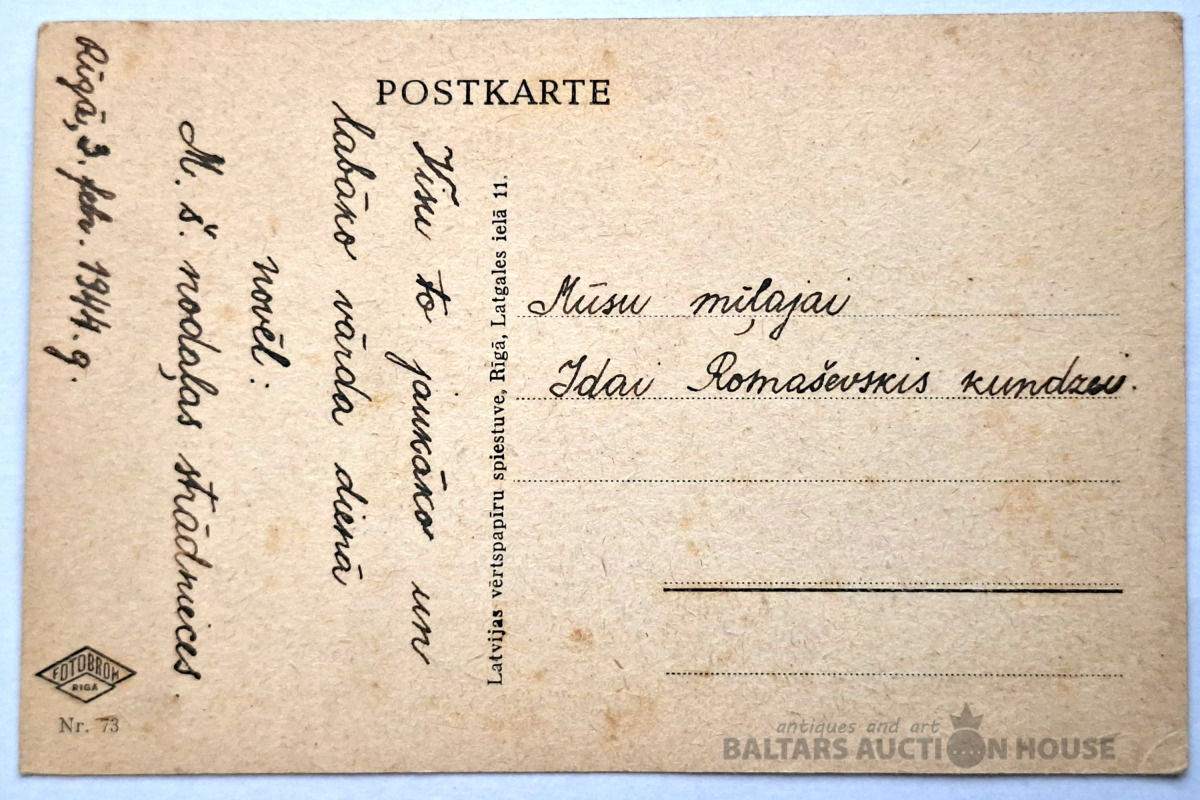 POSTKARTE
Visu to jaukāko un
labāko vārda dienā
novēl:
M. š. nodaļas strādnieces
Rīgā, 3. febr. 1944. g.
Latvijas vērtspapīru spiestuve, Rīgā, Latgales ielā 11.
Mūsu miļajai
Idai Romaševskis kundzei.
FOTOBROM
RIGA
Nr. 73
antiques and art
BALTARS AUCTION HOUSE